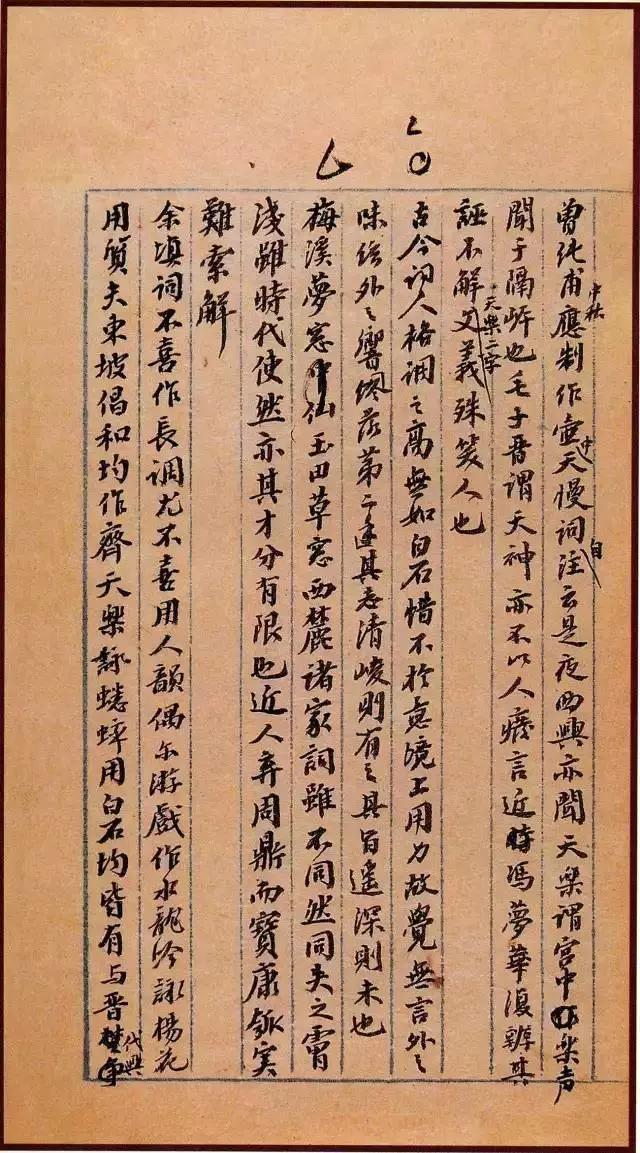 曾純甫中秋應制作壺中天慢詞自注云是夜西興亦聞天樂謂宮中樂声
聞于隔岸也毛子晋謂天神亦不以人癈言近時馮夢華復辨其
誣不解天樂二字文義殊笑人也
古今詞人格調之高無如白石惜不於意境上用力故覺無言外之
味絃外之響終落第二其志清峻則有之其旨遙深則未也
梅溪夢窓中仙玉田草窓西麓諸家詞雖不同然同失之膚
淺雖時代使然亦其才分有限也近人弃周鼎而寶康瓠实
難索解
余填詞不喜作長調尤不喜用人韻偶尔游戲作水龍吟詠楊花
用質夫東坡倡和均作齊天樂詠蟋蟀用白石均皆有与晋代興